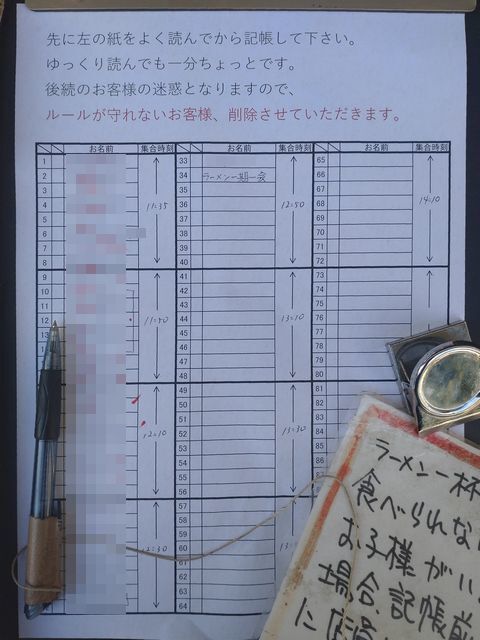 先に左の紙をよく読んでから記帳して下さい。
ゆっくり読んでも一分ちょっとです。
後続のお客様の迷惑となりますので、
ルールが守れないお客様、削除させていただきます。
お名前 集合時刻 お名前 集合時刻 お名前 集合時刻
1 33 65
2 34 ラーメン一期一会 66
3 35 67
4 11:35 36 12:50 68 14:10
5 37 69
6 38 70
7 39 71
8 40 72
9 41 73
10 42 74
11 43 75
12 11:50 44 13:10 76
13 45
46
47
48 80
49 81
50 82
51 83
12:10 52 13:30 84
53 85
54 86
55
56
57
58
59
12:30 60
61
62
63
64
ラーメン一杯
食べられな
お子様がい
場合記帳前
に店員